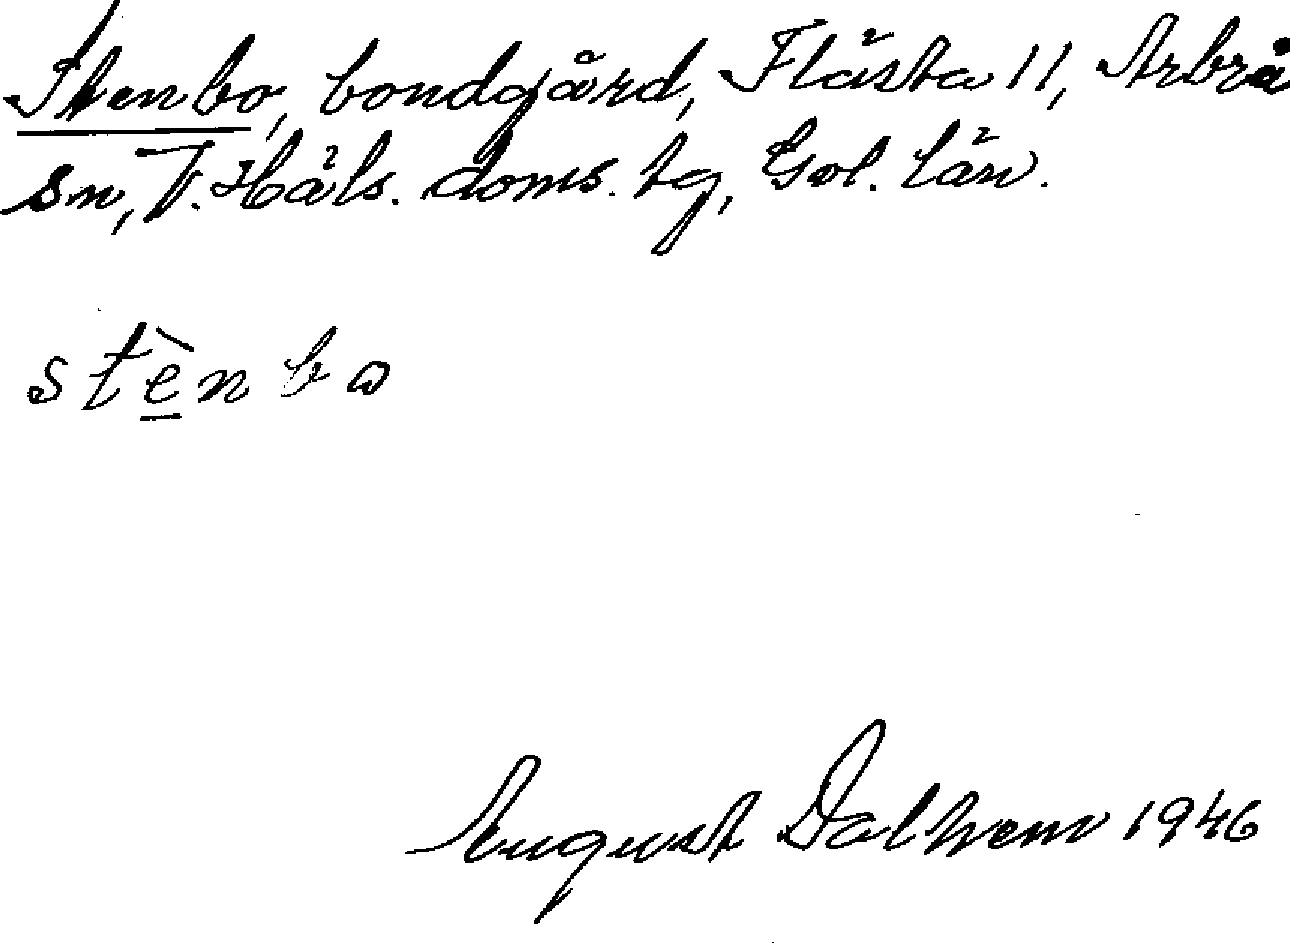 Stenbo, bondgård, Flästa 11, Arbrå
sn, V. Häls. doms. tg, Gvl. län.
stè̲nbo
August Dalhem 1946